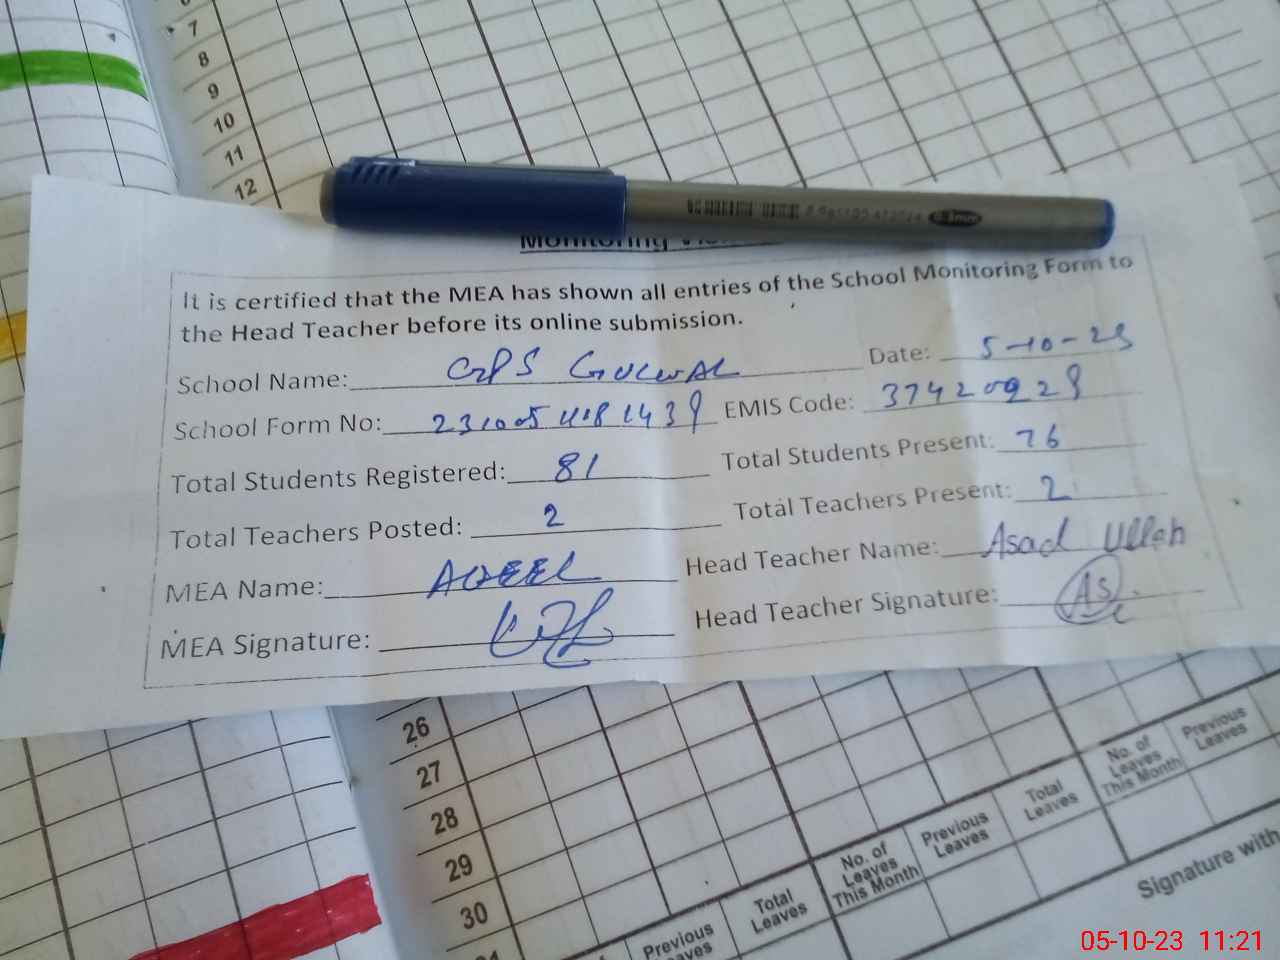 7
8
9
10
11
12
0.3mm
Monitoring
It is certified that the MEA has shown all entries of the School Monitoring Form to
the Head Teacher before its online submission.
School Name: GPS GULWAL Date: 5-10-23
School Form No: EMIS Code: 37420928
Total Students Registered: 81 Total Students Present: 76
Total Teachers Posted: 2 Total Teachers Present: 2
MEA Name: AQEEL Head Teacher Name: Asad Ullah
MEA Signature: Head Teacher Signature: As
26
27
28
29
30
31
Previous Leaves
Total Leaves
No. of Leaves This Month
Previous Leaves
Total Leaves
No. of Leaves This Month
Previous Leaves
Signature with
05-10-23 11:21